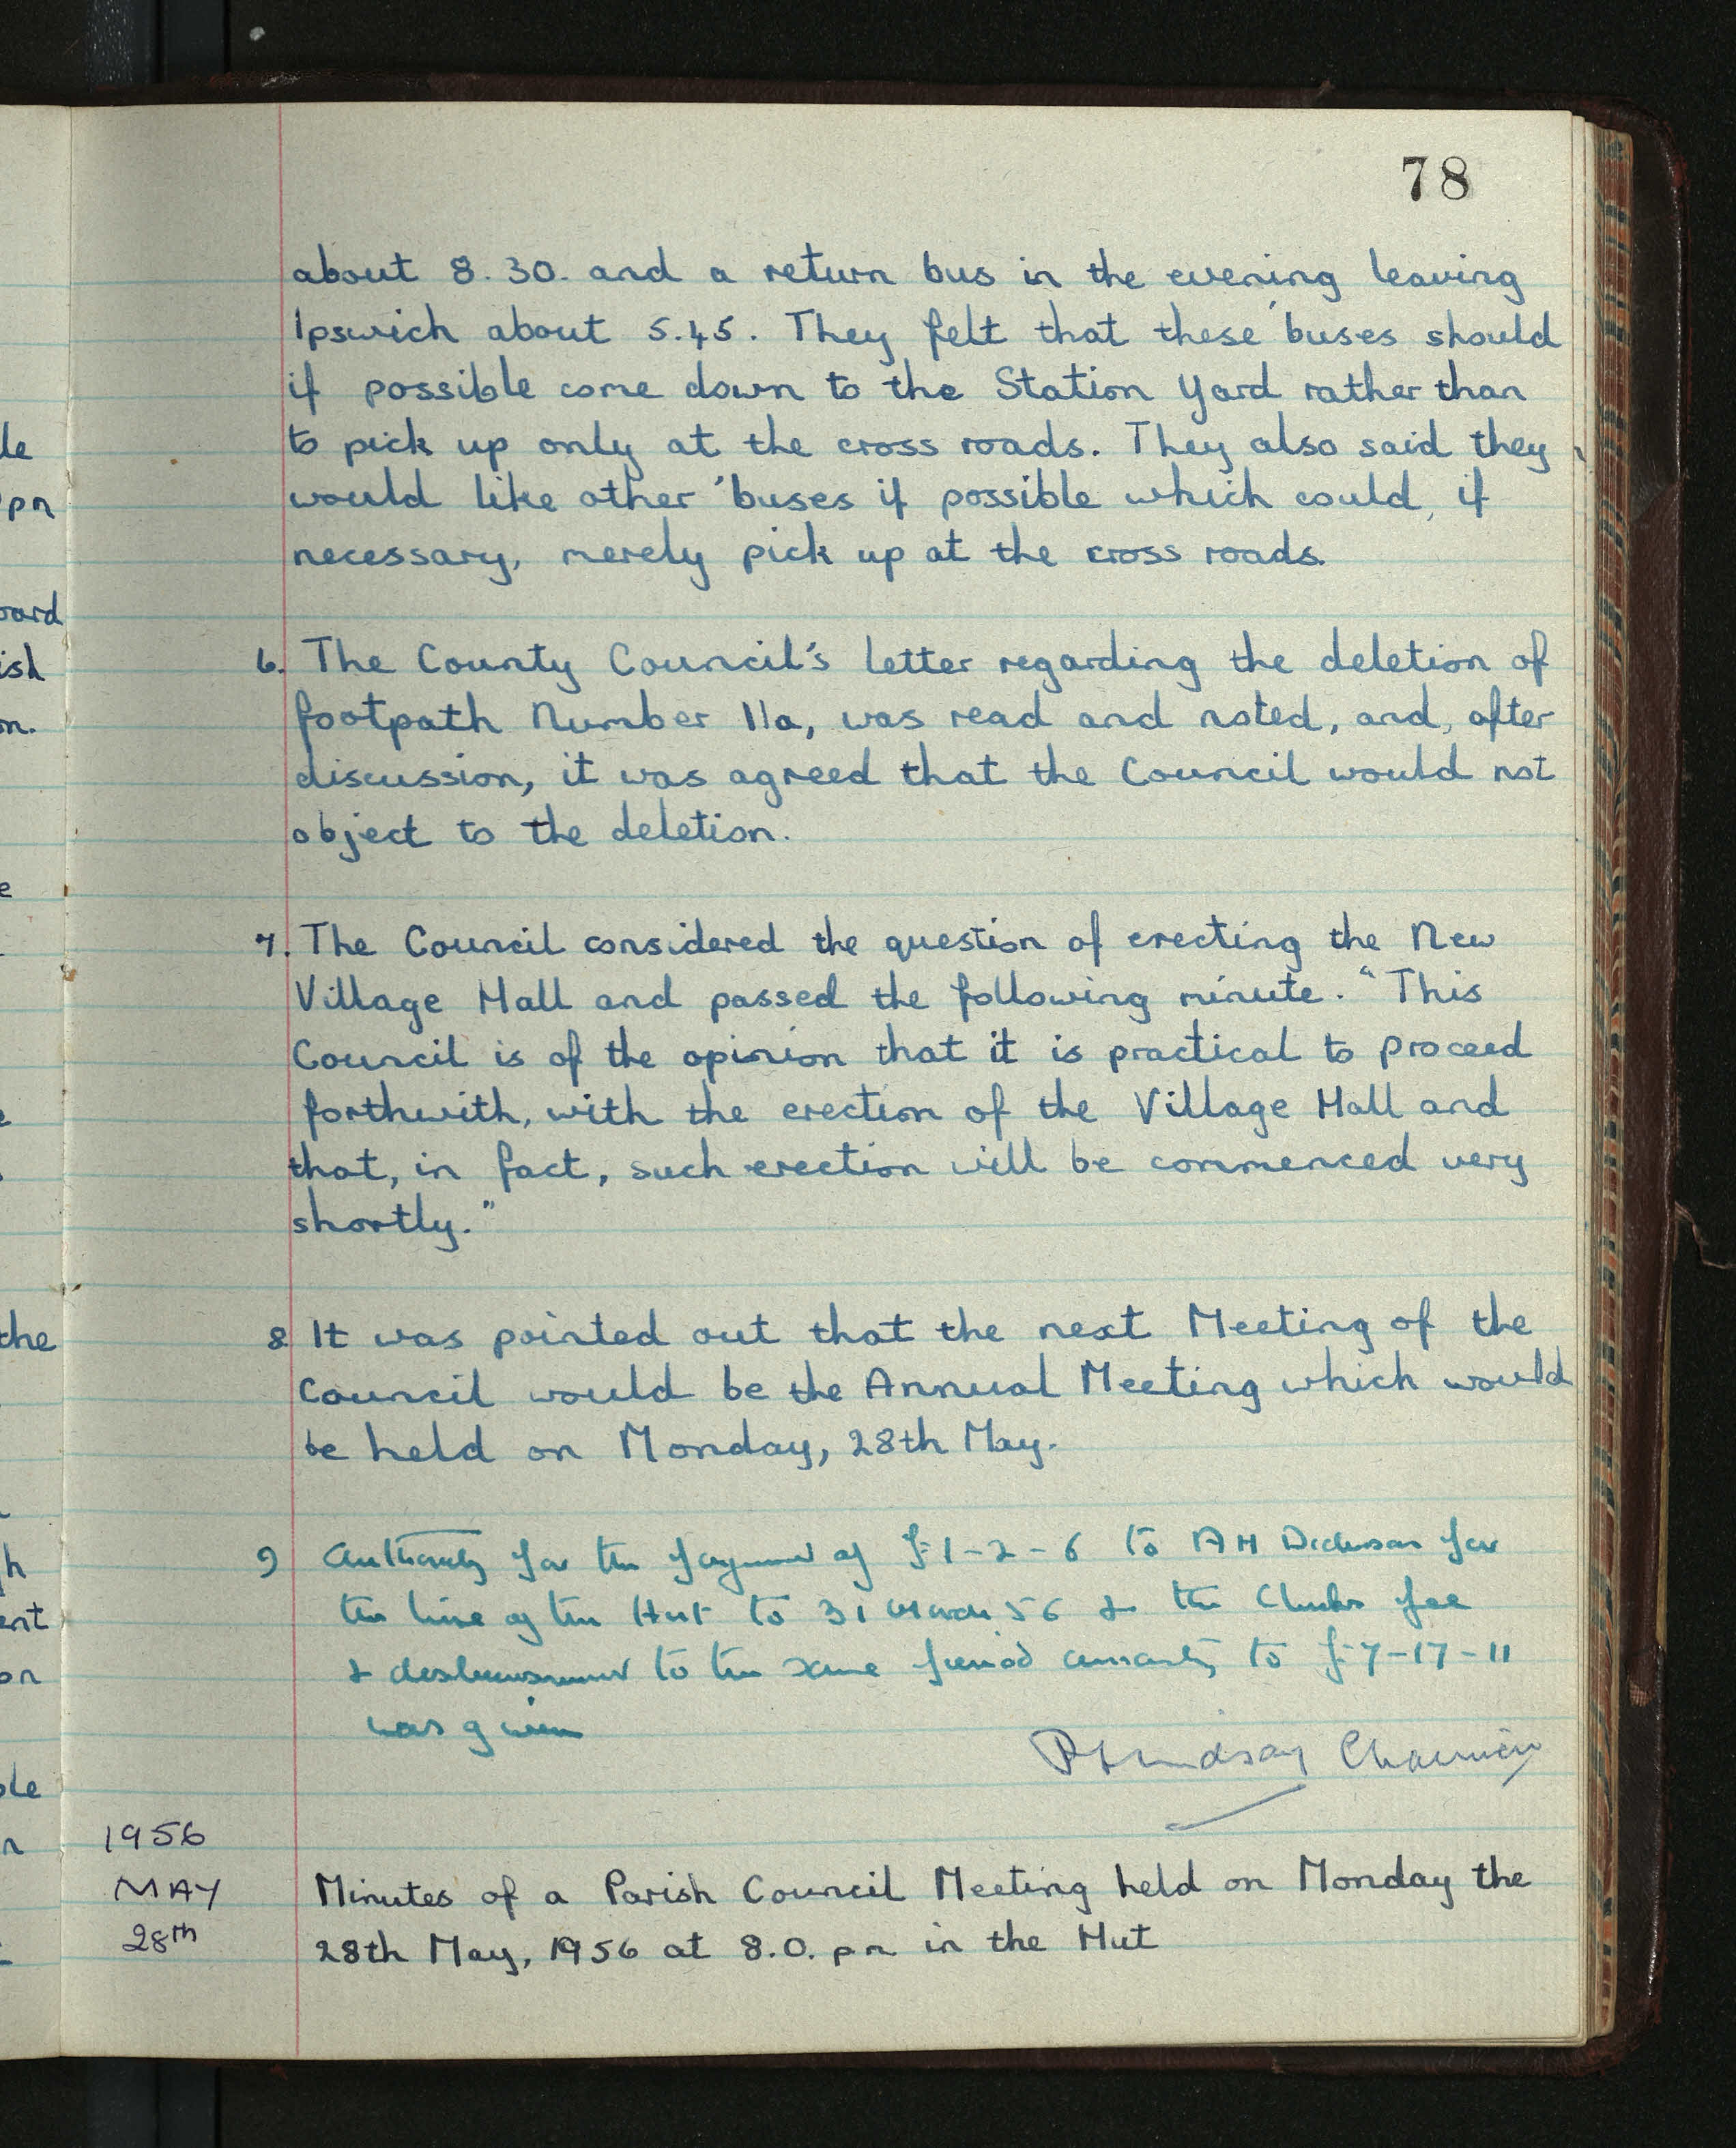 78
about 8.30. and a return bus in the evening leaving
Ipswich about 5.45. They felt that these 'buses should
if possible come down to the Station Yard rather than
to pick up only at the cross roads. They also said they
would like other 'buses if possible which could, if
necessary, merely pick up at the cross roads.
6. The County Council's letter regarding the deletion of
footpath Number 11a, was read and noted, and, after
discussion, it was agreed that the Council would not
object to the deletion.
7. The Council considered the question of erecting the New
Village Hall and passed the following minute. "This
Council is of the opinion that it is practical to proceed
forthwith, with the erection of the Village Hall and
that, in fact, such erection will be commenced very
shortly."
8 It was pointed out that the next Meeting of the
Council would be the Annual Meeting which would
be held on Monday, 28th May.
9 Authority for the payment of £1-2-6 to AH Dickinson for
the hire of the Hut to 31 March 56 & the Clerks fee
& disbursement to the same period amounting to £7-17-11
was given
Lindsay
1956
MAY
28th
Minutes of a Parish Council Meeting held on Monday the
28th May, 1956 at 8.0. pm in the Hut